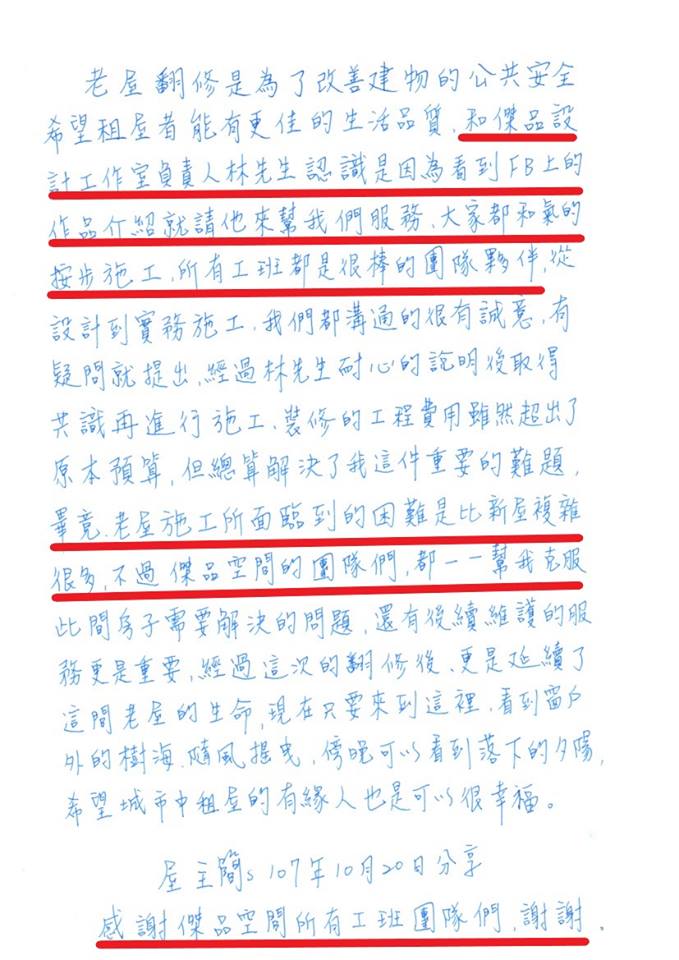 老屋翻修是為了改善建物的公共安全
希望租屋者能有更佳的生活品質,和傑品設
計工作室負責人林先生認識是因為看到FB上的
作品介紹就請他來幫我們服務、大家都和氣的
按步施工,所有工班都是很棒的團隊夥伴,從
設計到實務施工,我們都溝通的很有誠意,有
疑問就提出,經過林先生耐心的說明後取得
共識再進行施工、裝修的工程費用雖然超出了
原本預算,但總算解決了我這件重要的難題,
畢竟、老屋施工所面臨到的困難是比新屋複雜
很多,不過傑品空間的團隊們,都一一幫我克服
此間房子需要解決的問題,還有後續維護的服
務更是重要,經過這次的翻修後、更是延續了
這間老屋的生命,現在只要來到這裡,看到窗戶
外的樹海、隨風搖曳,傍晚可以看到落下的夕陽,
希望城市中租屋的有緣人也是可以很幸福。
屋主簡s 107年10月20日分享
感謝傑品空間所有工班團隊們,謝謝.